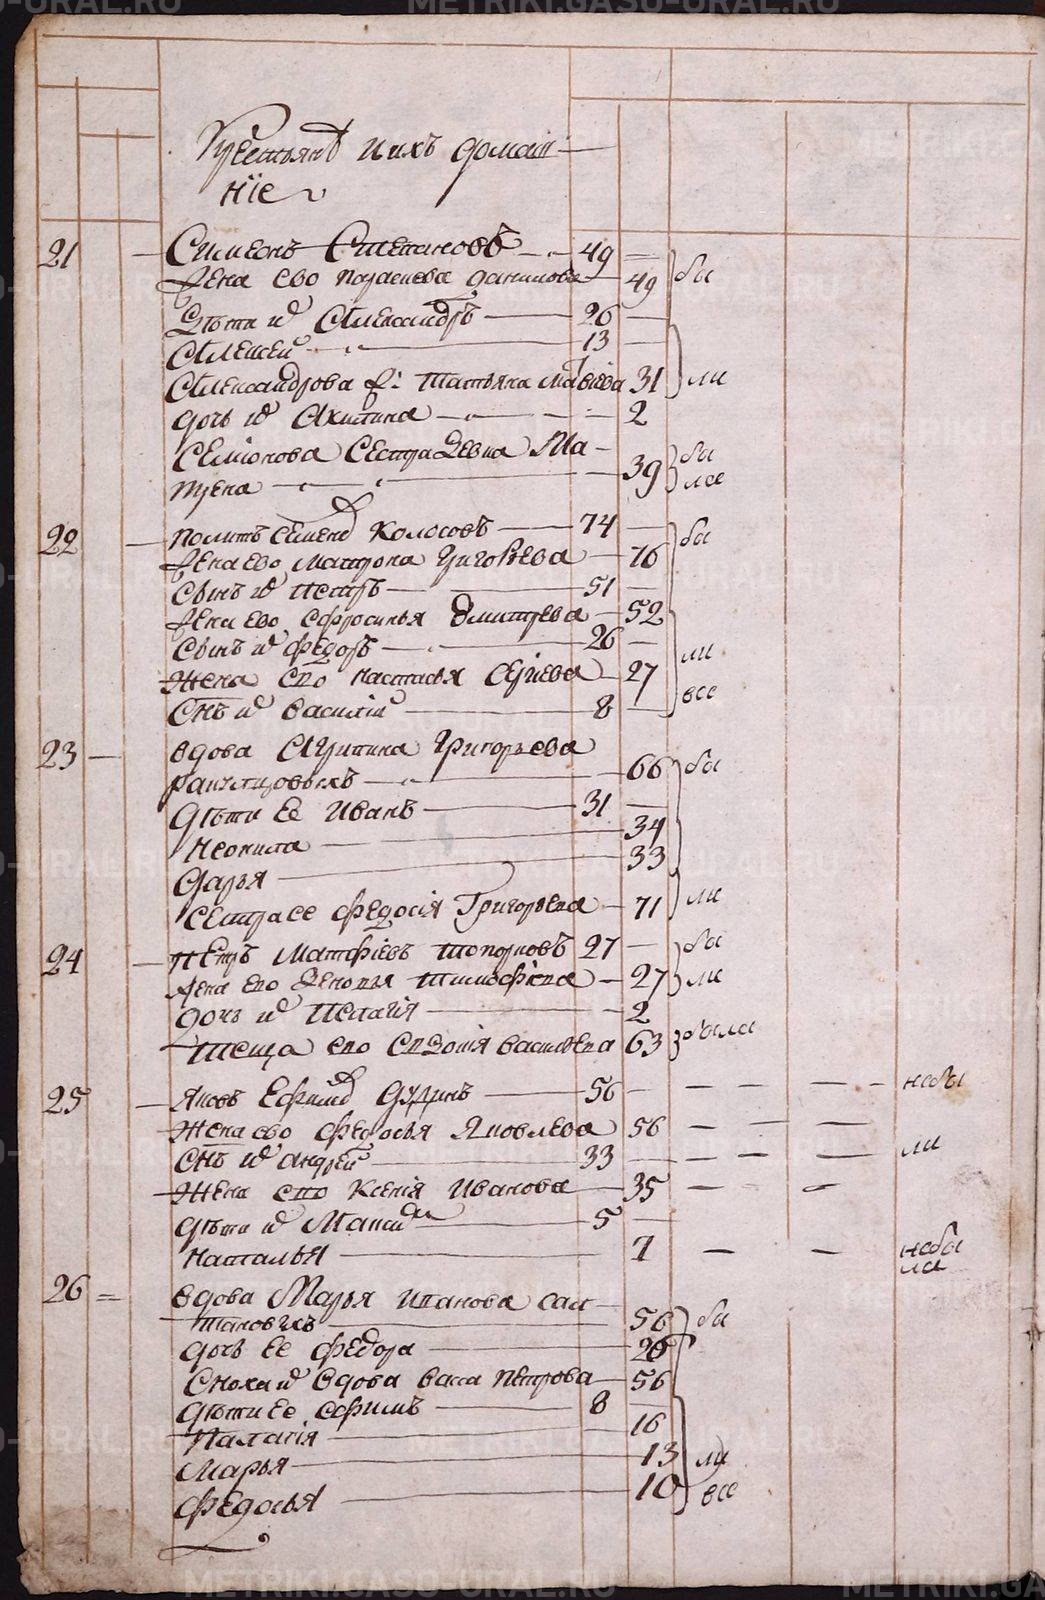 METRIKI.GASO-URAL.RU
Крестьянѣ ихъ домаш
нїе
21 Симеонъ Степановъ 49 бы
Жена ево Парасковья Данилова 49
Дѣти их Александръ 26
Алексей 13
Александрова ж: Татьяна Матвѣева 31 ли
дочь их Акилина 2
Семіонова Сестра Девка Ма
трена 39 бы лее
22 Политъ Семенов Колосовъ 74 бы
Жена ево Матрона Григорьева 76
Сынъ их Петръ 51
Жена ево Ефросинья Дмитрева 52
Сынъ их Федоръ 26 ли
Жена ево Настасья Сергіева 27 все
Снъ их Василий 8
23 вдова Агрипина Григорьева
66 бы
Дѣти Ее Иванъ 31
Неонила 34
Дарья 33
Сестра ее Федосія Григорьева 71 ли
24 Петръ Матфіевъ Топорковъ 27 бы
Жена ево Зеновья Тимофіева 27 ли
дочь их Пелагія 2
Теща ево Евдокія Васильева 63 была
25 Яковъ Ефимов Дудинъ 56 небы
Жена ево Федосья Яковлева 56
Снъ их Андрей 33 ли
Жена ево Ксенія Иванова 35
Дѣти их Максим 5
Наталья 7 небы
ла
26 вдова Марья Иванова Сал
тановыхъ 56 бы
дочь Ее Федора 26
Сноха их вдова Васа Петрова 56
Дѣти Ее Ефимъ 8
Палагія 16
Марья 13 ли
Федосья 10 все
METRIKI.GASO-URAL.RU